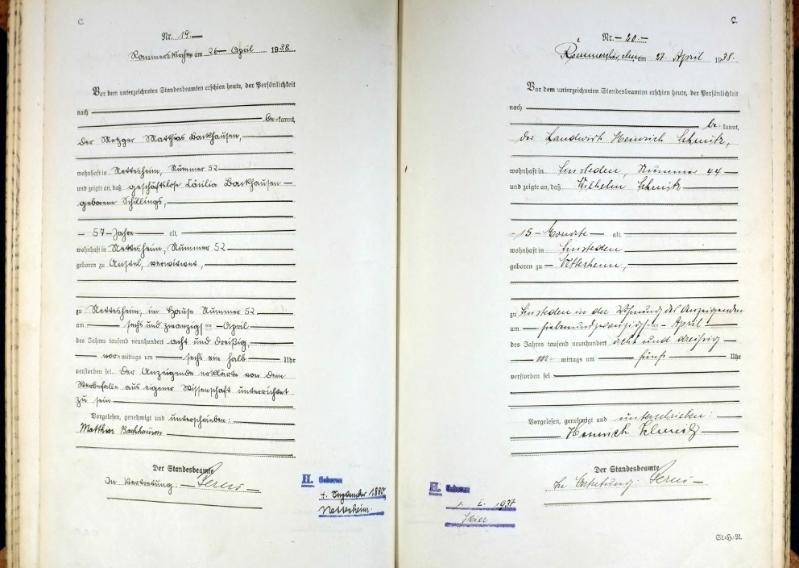 C.
Nr. 19
Rommerskirchen am 26 April 1938.
Vor dem unterzeichneten Standesbeamten erschien heute, der Persönlichkeit
nach
bekannt,
der Metzger Matthias Backhausen,
wohnhaft in Nettesheim, Nummer 52
und zeigte an, daß geschäftslose Cäcilia Backhausen
geborene Schillings,
57 Jahre alt
wohnhaft in Nettesheim, Nummer 52
geboren zu Anstel, verwitwet,
zu Nettesheim, im Hause Nummer 52
am sechs und zwanzigsten April
des Jahres tausend neunhundert acht und dreißig,
vormittags um sechs ein halb Uhr
verstorben sei. Der Anzeigende erklärte von dem
Sterbefalle aus eigener Wissenschaft unterrichtet
zu sein
Vorgelesen, genehmigt und unterschrieben:
Matthias Backhausen
Der Standesbeamte
In Vertretung
H. Geboren
4. Dezember 1880,
Nettesheim
C.
Nr. 20
Rommerskirchen 27 April 1938.
Vor dem unterzeichneten Standesbeamten erschien heute, der Persönlichkeit
nach
bekannt,
der Landwirt Heinrich Schmitz,
wohnhaft in Sinsteden, Nummer 44
und zeigte an, daß Wilhelm Schmitz
15 Monate alt
wohnhaft in Sinsteden
geboren zu
zu Sinsteden in der Wohnung des Anzeigenden
am siebenundzwanzigsten April
des Jahres tausend neunhundert acht und dreißig
mittags um fünf Uhr
verstorben sei
Vorgelesen, genehmigt und unterschrieben:
Heinrich Schmitz
Der Standesbeamte
In Vertretung
H. Geboren
1937